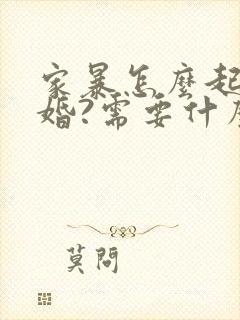 家暴怎麼起
婚?需要什
莫問